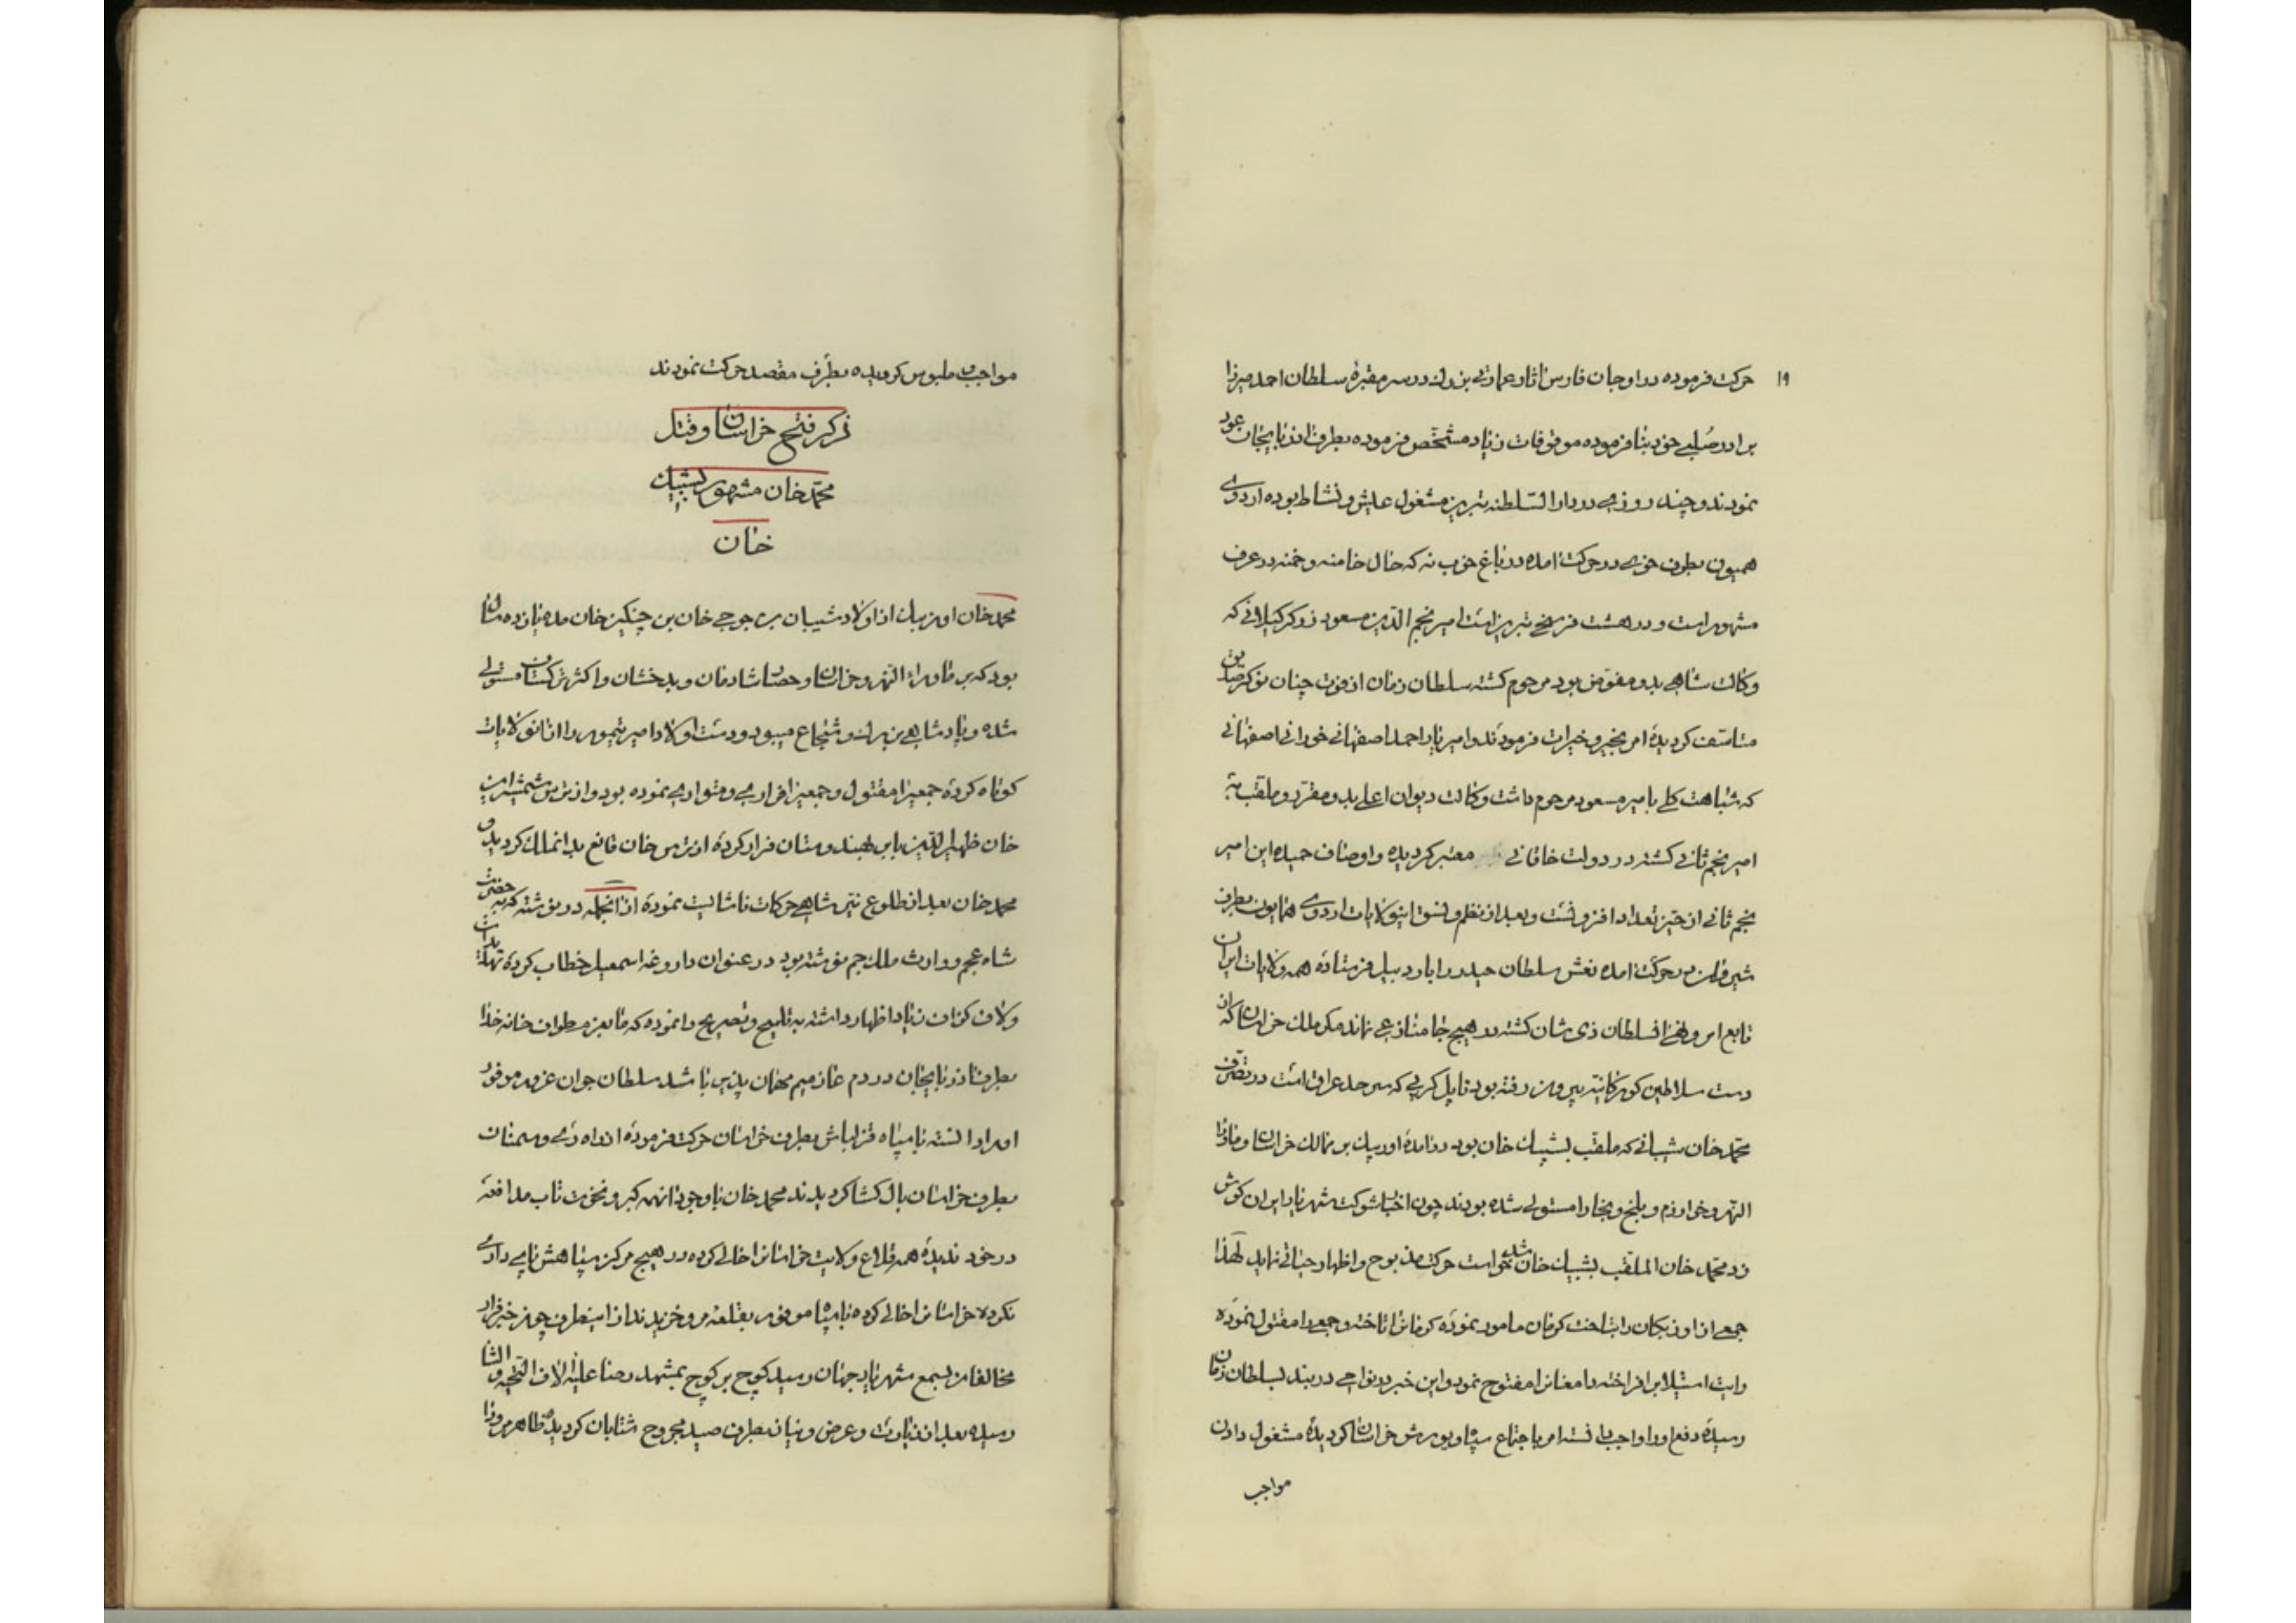 ۱۹
حرکت فرموده در اوجان فارس اثار عمارتی بزرك در سر مقبرهٔ سلطان احمد میرزا
برادر صلبی خود بنا فرموده موقوفات زیاد مشخص فرموده بطرف اذربایجان عود
نمودند و چند روزی در دار السلطنه تبریز مشغول عیش و نشاط بوده اردوی
همیون بطرف خوی در حرکت امده در باغ خوب نه که حال خامنه و خمنه در عرف
مشهور است و در هشت فرسخی تبریز است امیر نجم الدین مسعود زرکر کیلانی که
وکالت شاهی بدو مفوض بود مرحوم کشته سلطان زمان از فوت چنان نوکر صادق
متاسف کردیده امر بخیر و خیرات فرمودند و امیر یار احمد اصفهانی خوزانی اصفهانی
که شباهت کلی بامیر مسعود مرحوم داشت وکالت دیوان اعلی بدو مقرر و ملقب به
امیر نجم ثانی کشته در دولت خاقانی معتبر کردیده و اوصاف حمیده این امیر
نجم ثانی از حیز تعداد افزونست و بعد از نظم و نسق اینولایات اردوی همایون بطرف
شیروان در حرکت امده نعش سلطان حیدر را باردبیل فرستاده همه ولایات ایران
تابع امر و نهی انسلطان ذی شان کشته در هیچ جا منازعی نماند مکر ملك خراسان که از
دست سلاطین کورکانیه بیرون رفته بود تا پل کرپی که سرحد عراق است در تصرف
محمد خان شیبانی که ملقب بشیبك خان بود در امده اوزبیك بر ممالك خراسان و ماورا
النهر و خوارزم و بلخ و بخارا مستولی شده بودند چون اخبار شوکت شهریار ایران کوش
زد محمد خان الملقب بشیبك خان شد خواست حرکت مذبوح و اظهار حیاتی نماید لهذا
جمعی از اوزبکان را بتاخت کرمان مامور نموده کرمان را تاخته و جمعی را مقتول نموده
رایت استیلا بر افراخته دامغان را مفتوح نمود و این خبر در نواحی دربند بسلطان زمان
رسیده دفع او را واجب دانسته امر باجتماع سپاه و یورش خراسان کردیده مشغول دادن
مواجب
مواجب و ملبوس کردیده بطرف مقصد حرکت نمودند
ذکر فتح خراسان و قتل
محمد خان مشهور بشیبك
خان
محمد خان اوزبك از اولاد شیبان بن جوجی خان بن چنکیز خان مدت یازده سال
بود که بر ماوراء النهر و خراسان و حصار شادمان و بدخشان و اکثر ترکستان مستولی
شده و پادشاهی بزرك و شجاع میبود و دست اولاد امیر تیمور را از انولایات
کوتاه کرده جمعیرا مقتول و جمعیرا فراری و متواری نموده بود و از ترس شمشیر این
خان ظهیر الدین بابر بهندوستان فرار کرده از ترس خان قانع بدانملك کردید و
محمد خان بعد از طلوع نیر شاهی حرکات ناشایست نموده از انجمله در نوشته که به حضرت
شاه عجم و وارث ملك جم نوشته بود در عنوان داروغه اسمعیل خطاب کرده تهدیدات
و لاف کزاف زیاد اظهار داشته به تلمیح و تصریح وانموده که ما بعزم طواف خانه خدا
بطرف اذربایجان در دم عازمیم مهمان پذیر باشد سلطان جوان غرور موفور
او را دانسته با سپاه قزلباش بطرف خراسان حرکت فرموده از راه ری و سمنان
بطرف خراسان بال کشا کردیدند محمد خان با وجود انهمه کبر و نخوت تاب مدافعه
در خود ندیده همه قلاع ولایت خراسان را خالی کرده در هیچ مرکز سپاهش پای داری
نکرده خراسان را خالی کرده با سپاه موفور بقلعه مرو خزیدند از اینطرف چون خبر فرار
مخالفان بسمع شهریار جهان رسید کوچ بر کوچ بمشهد رضا علیه الاف التحیه و الثنا
رسیده بعد از زیارت و عرض و نیاز بطرف صید مجروح شتابان کردیده ظاهر مرو را